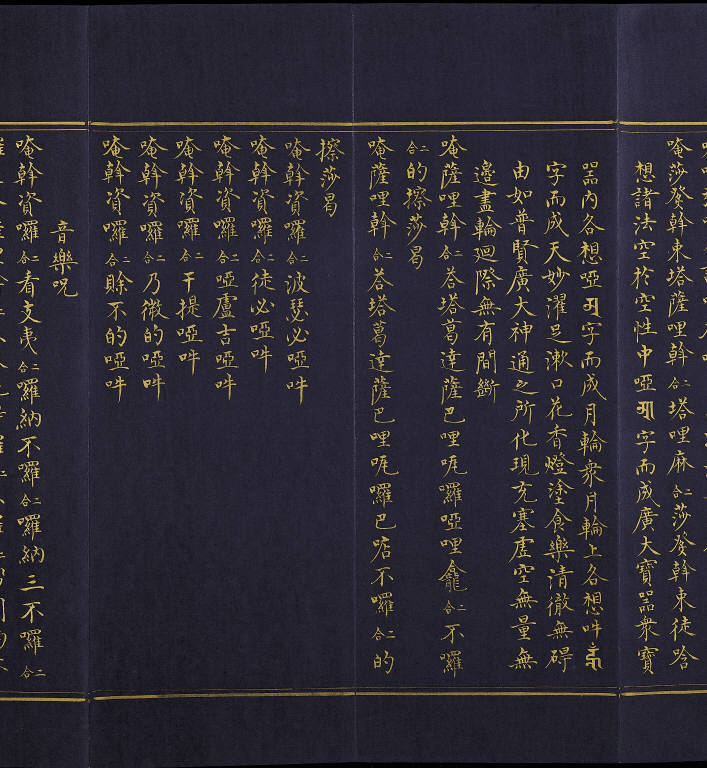 唵莎發斡束塔薩哩斡二合塔哩麻二合莎發斡束徒唅
想諸法空於空性中啞字而成廣大寶器衆寶
器內各想啞字而成月輪衆月輪上各想吽
字而成天妙濯足漱口花香燈塗食樂清徹無碍
由如普賢廣大神通之所化現充塞虛空無量無
邊盡輪廻際無有間斷
唵薩哩斡二合荅塔葛達薩巴哩咓囉啞哩龕二合不囉
二合的擦莎曷
唵薩哩斡二合荅塔葛達薩巴哩咓囉巴㗳不囉二合的
擦莎曷
唵斡資囉二合波瑟必啞吽
唵斡資囉二合徒必啞吽
唵斡資囉二合啞盧吉啞吽
唵斡資囉二合干提啞吽
唵斡資囉二合乃微的啞吽
唵斡資囉二合賒不的啞吽
音樂呪
唵斡資囉二合看支夷二合囉納不囉二合囉納三不囉二合